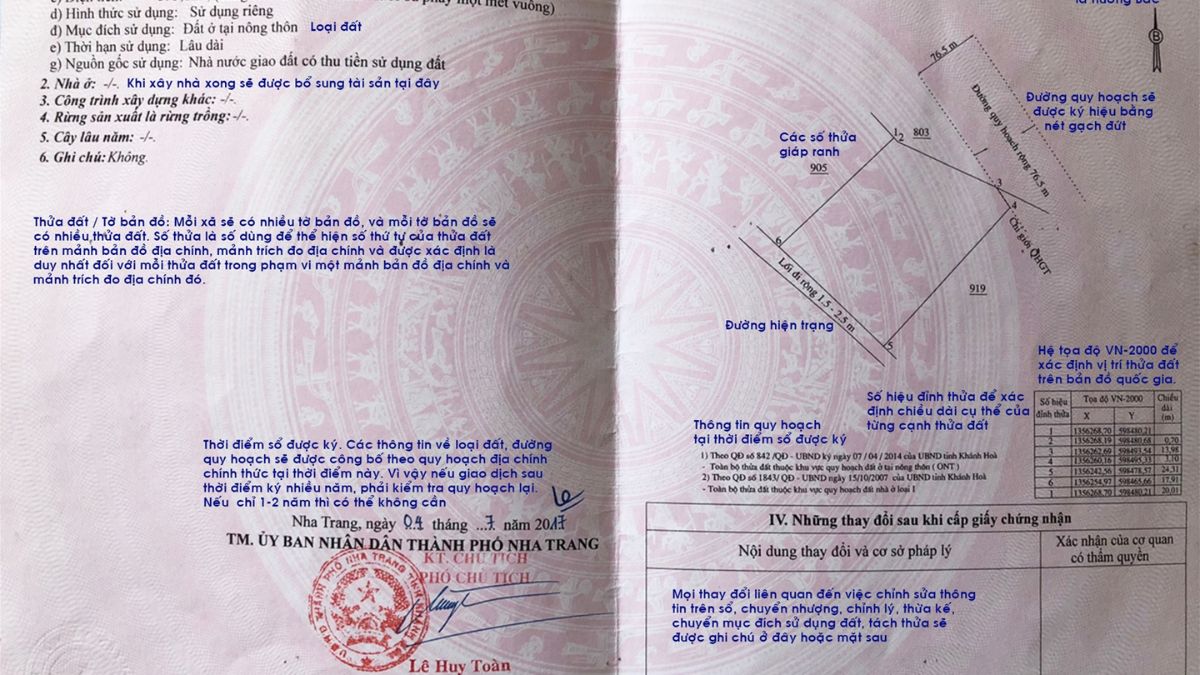 d) Hình thức sử dụng: Sử dụng riêng
đ) Mục đích sử dụng: Đất ở tại nông thôn Loại đất
e) Thời hạn sử dụng: Lâu dài
g) Nguồn gốc sử dụng: Nhà nước giao đất có thu tiền sử dụng đất
2. Nhà ở: -/-. Khi xây nhà xong sẽ được bổ sung tài sản tại đây
3. Công trình xây dựng khác: -/-.
4. Rừng sản xuất là rừng trồng: -/-.
5. Cây lâu năm: -/-.
6. Ghi chú: Không.
Thửa đất / Tờ bản đồ: Mỗi xã sẽ có nhiều tờ bản đồ, và mỗi tờ bản đồ sẽ
có nhiều,thửa đất. Số thửa là số dùng để thể hiện số thứ tự của thửa đất
trên mảnh bản đồ địa chính, mảnh trích đo địa chính và được xác định là
duy nhất đối với mỗi thửa đất trong phạm vi một mảnh bản đồ địa chính và
mảnh trích đo địa chính đó.
Thời điểm sổ được ký. Các thông tin về loại đất, đường
quy hoạch sẽ được công bố theo quy hoạch địa chính
chính thức tại thời điểm này. Vì vậy nếu giao dịch sau
thời điểm ký nhiều năm, phải kiểm tra quy hoạch lại.
Nếu chỉ 1-2 năm thì có thể không cần
Nha Trang, ngày 04 tháng ..7 năm 2017
TM. ỦY BAN NHÂN DÂN THÀNH PHỐ NHA TRANG
KT. CHỦ TỊCH
PHÓ CHỦ TỊCH
Lê Huy Toàn
là hướng Bắc
B
76.5 m
Đường quy hoạch rộng 76.5 m
Đường quy hoạch sẽ
được ký hiệu bằng
nét gạch đứt
Các số thửa
giáp ranh
905
1
2
803
3
4
Chỉ giới QHGT
6
Lối đi rộng 1.5 - 2.5 m
919
5
Đường hiện trạng
Hệ tọa độ VN-2000 để
xác định vị trí thửa đất
trên bản đồ quốc gia.
Số hiệu đỉnh thửa để xác
định chiều dài cụ thể của
từng cạnh thửa đất
Số hiệu đỉnh thửa Tọa độ VN-2000 Chiều dài (m)
X Y
1 1356268,70 598480,21
0,70
2 1356268.19 598480,68
13,98
3 1356262,69 598493,54
4 1356260,16
24,31
5 1356242,56 598478,57
17,91
6 1356254,97 598465,66
20,01
1 1356268,70 598480,21
Thông tin quy hoạch
tại thời điểm sổ được ký
1) Theo QĐ số 842 /QĐ - UBND ký ngày 07 / 04 / 2014 của UBND tỉnh Khánh Hoà
- Toàn bộ thửa đất thuộc khu vực quy hoạch đất ở tại nông thôn ( ONT )
2) Theo QĐ số 1843/ QĐ - UBND ngày 15/10/2007 của UBND tỉnh Khánh Hoà
- Toàn bộ thửa đất thuộc khu vực quy hoạch đất nhà ở loại 1
IV. Những thay đổi sau khi cấp giấy chứng nhận
Nội dung thay đổi và cơ sở pháp lý
Xác nhận của cơ quan
có thẩm quyền
Mọi thay đổi liên quan đến việc chỉnh sửa thông
tin trên sổ, chuyển nhượng, chỉnh lý, thừa kế,
chuyển mục đích sử dụng đất, tách thửa sẽ
được ghi chú ở đây hoặc mặt sau